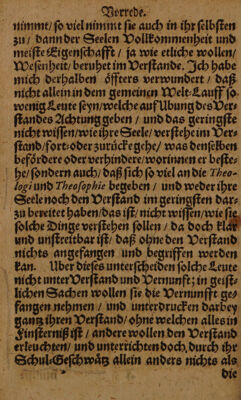 Vorrede.
nimmt/ so viel nimmt sie auch in ihr selbsten
zu/ dann der Seelen Vollkommenheit und
meiste Eigenschafft/ ja wie etliche wollen/
Wesenheit/ beruhet im Verstande. Ich habe
mich derhalben öffters verwundert/ daß
nicht allein in dem gemeinen Welt-Lauff so
wenig Leute seyn/ welche auf Ubung des Ver-
standes Achtung geben/ und das geringste
nicht wissen/ wie ihre Seele/ verstehe im Ver-
stand/ fort- oder zurücke gehe/ was denselben
befördere oder verhindere/ worinnen er beste-
he/ sondern auch/ daß sich so viel an die Theo-
logi und Theosophie begeben/ und weder ihre
Seele noch den Verstand im geringsten dar-
zu bereitet haben/ das ist/ nicht wissen/ wie sie
solche Dinge verstehen sollen/ da doch klar
und unstreitbar ist/ daß ohne den Verstand
nichts angefangen und begriffen werden
kan. Uber dieses unterscheiden solche Leute
nicht unter Verstand und Vernunft; in geist-
lichen Sachen wollen sie die Vernunfft ge-
fangen nehmen/ und unterdrucken darbey
gantz ihren Verstand/ ohne welchen alles in
Finsterniß ist/ andere wollen den Verstand
erleuchten/ und unterrichten doch/ durch ihr
Schul-Geschwätz allein anders nichts als
die